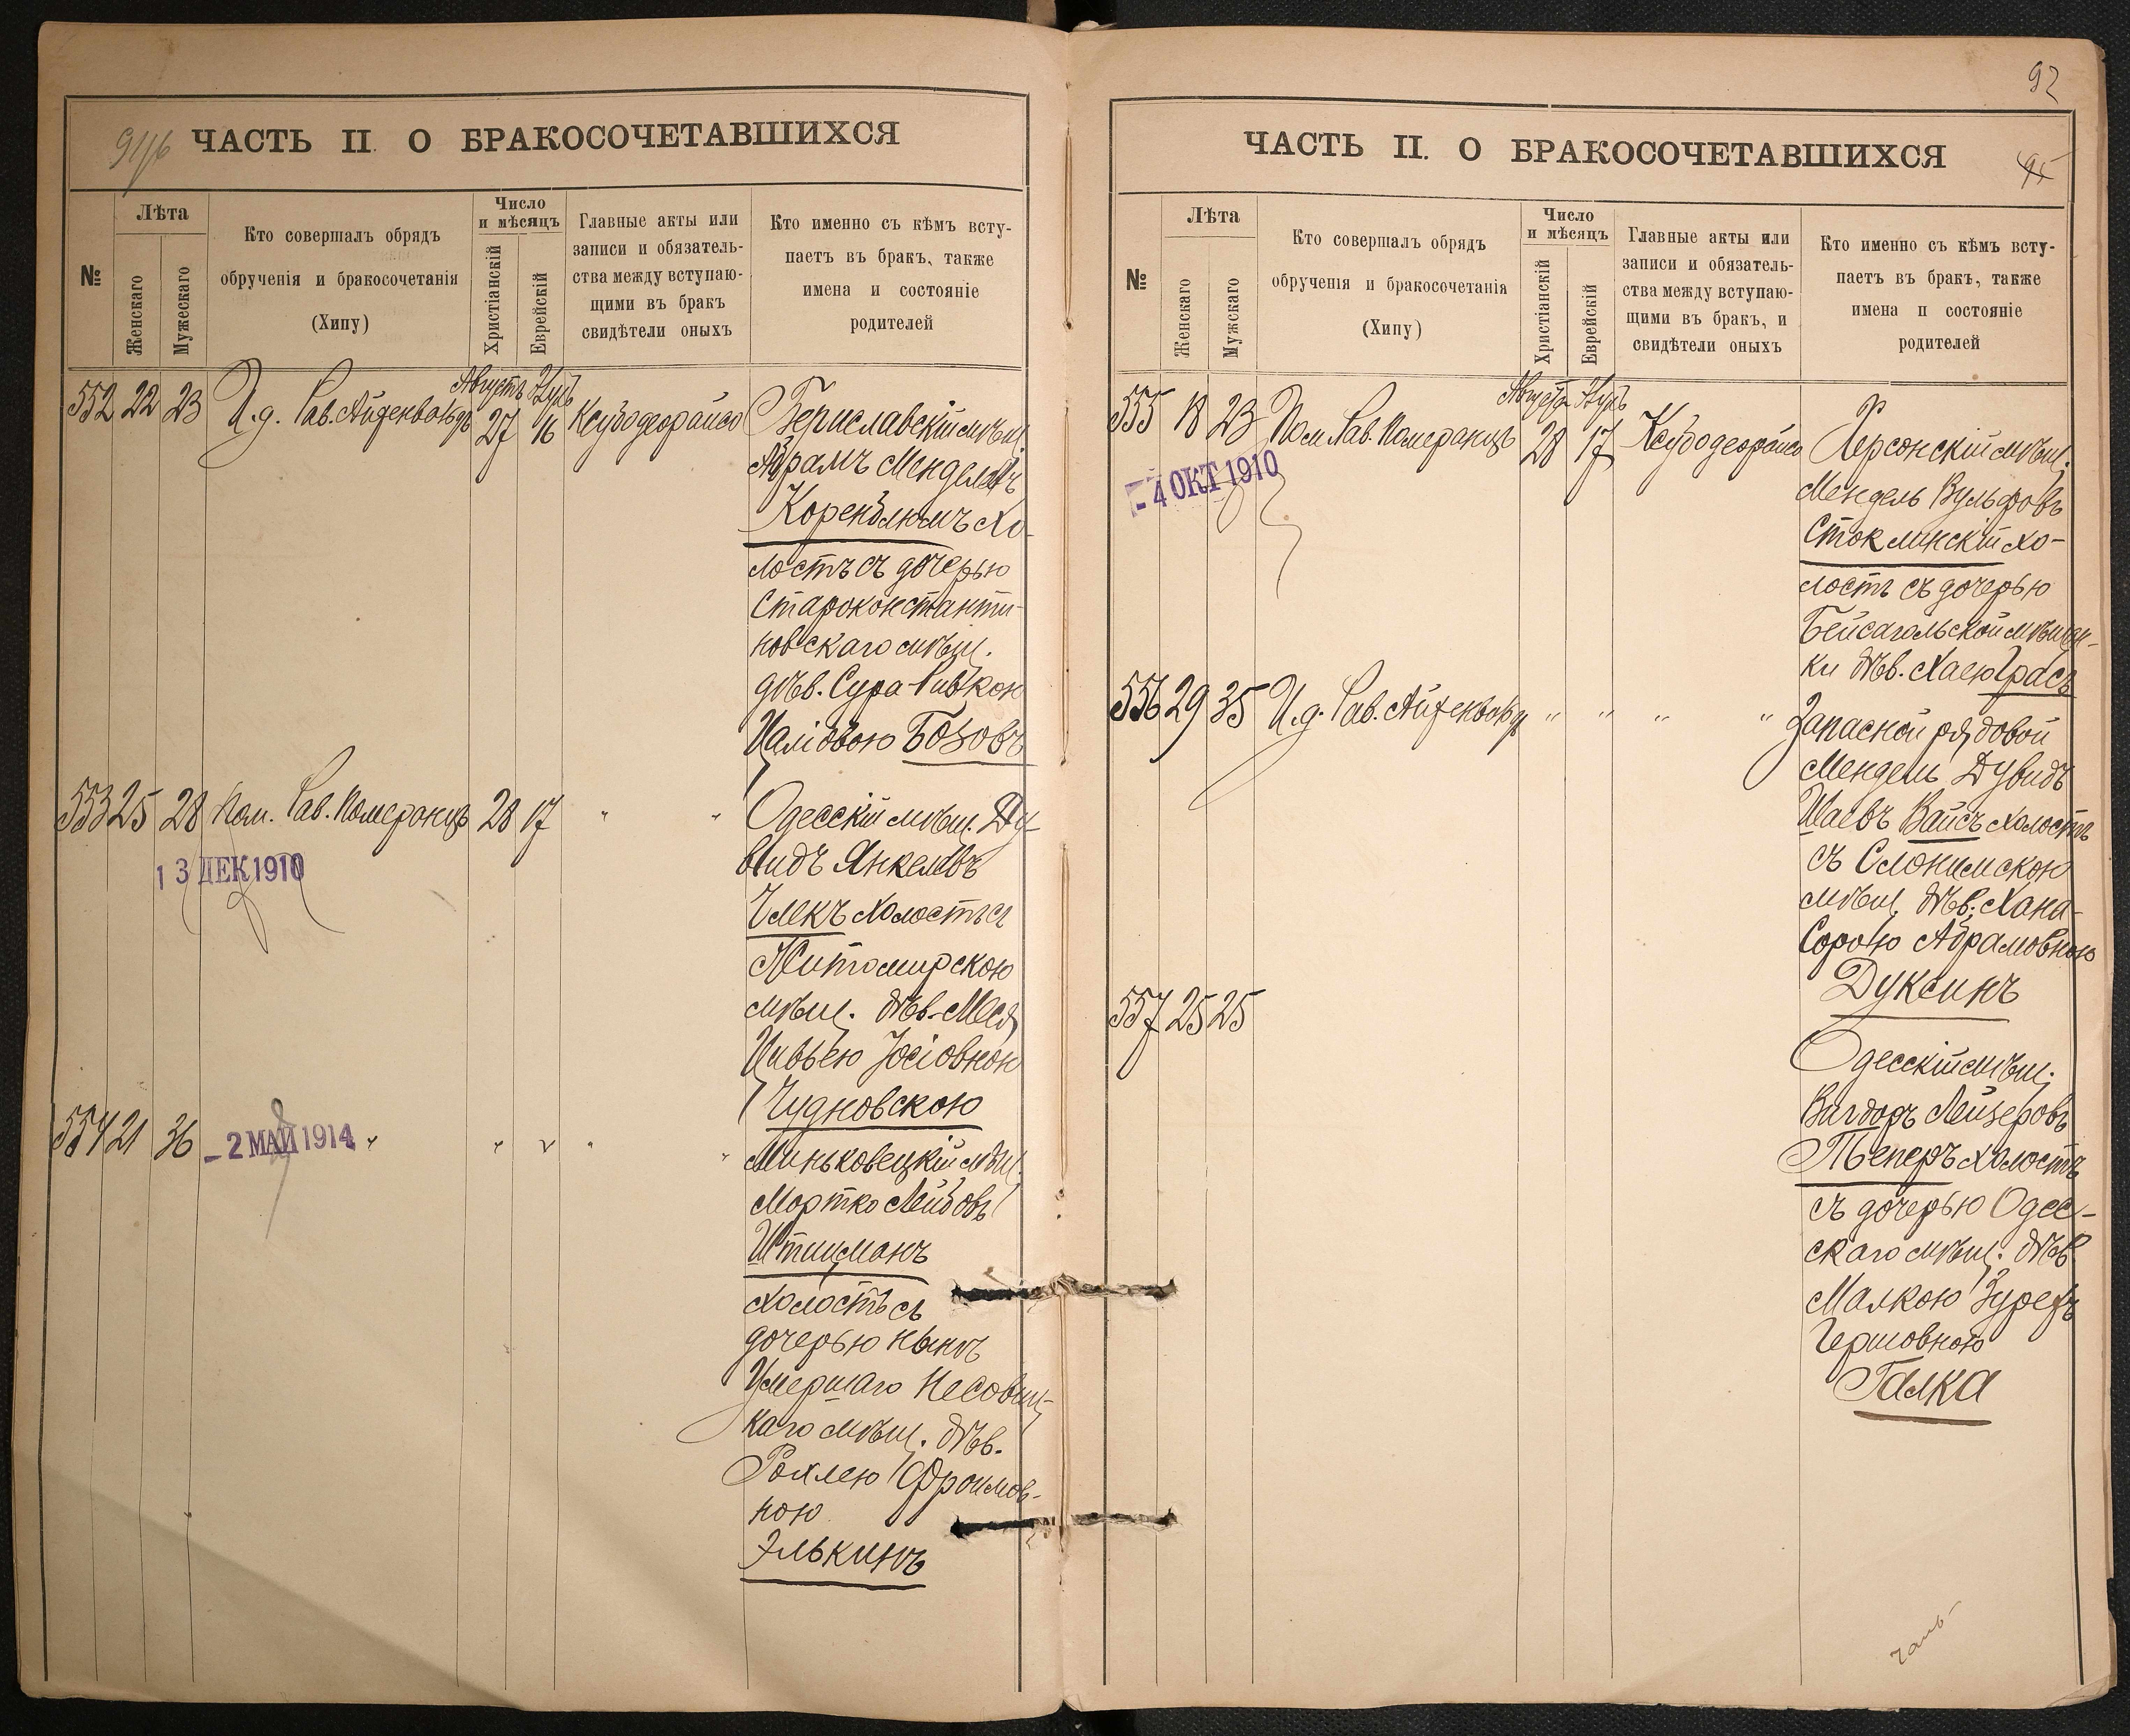 ЧАСТЬ II. О БРАКОСОЧЕТАВШИХСЯ
№
Лѣта
Женскаго
Мужескаго
Кто совершалъ обрядъ
обрученія и бракосочетанія
(Хипу)
Число
и мѣсяцъ
Христіанскій
Еврейскій
Главные акты или
записи и обязатель-
ства между вступаю-
щими въ бракъ
свидѣтели оныхъ
Кто именно съ кѣмъ всту-
паетъ въ бракъ, также
имена и состояніе
родителей
552 22 23 И.д. Рав. Айзенвайзъ
Августъ 27 16 Ксубо деорайсо
Бериславскій мѣщ.
Абрамъ Менделевъ
Коренблюмъ хо-
лостъ съ дочерью
Староконстанти-
новскаго мѣщ.
дѣв. Сура-Ривкою
Бозовъ
553 25 28 Пом. Рав. Померанцъ 28 17 " "
13 ДЕК 1910
Одесскій мѣщ. Ду-
видъ Янкелевъ
холостъ съ
Житомирскою
мѣщ. дѣв.
Цивьею Іосіовною
Чудновскою
554 21 36 " " " " "
- 2 МАЙ 1914
Миньковецкій мѣщ.
Мортко Лейбовъ
холостъ съ
дочерью нынѣ
Умершаго
каго мѣщ. дѣв.
Рохлею Фроимов-
ною
Элькинъ
92
ЧАСТЬ II. О БРАКОСОЧЕТАВШИХСЯ
95
№
Лѣта
Женскаго
Мужскаго
Кто совершалъ обрядъ
обрученія и бракосочетанія
(Хипу)
Число
и мѣсяцъ
Христіанскій
Еврейскій
Главные акты или
записи и обязатель-
ства между вступаю-
щими въ бракъ, и
свидѣтели оныхъ
Кто именно съ кѣмъ всту-
паетъ въ бракъ, также
имена и состояніе
родителей
555 18 23 Пом. Рав. Померанцъ
Августъ 28 17 Ксубо деорайсо
- 4 ОКТ 1910
Херсонскій мѣщ.
Мендель Вульфовъ
Стоклинскій хо-
лостъ съ дочерью
Бейсагольской мѣщан-
ки дѣв. Хаею Грасъ
556 29 35 И.д. Рав. Айзенвайзъ " " " "
Запасной рядовой
Мендель Дувидъ
Шаевъ Вайсъ холостъ
съ Слонимскою
мѣщ. дѣв. Хана-
Сорою Абрамовною
Дуксинъ
557 25 25
Одесскій мѣщ.
Вигдоръ Лейзеровъ
Теперъ холостъ
съ дочерью Одес-
скаго мѣщ. дѣв.
Малкою
Гершовною
Галка